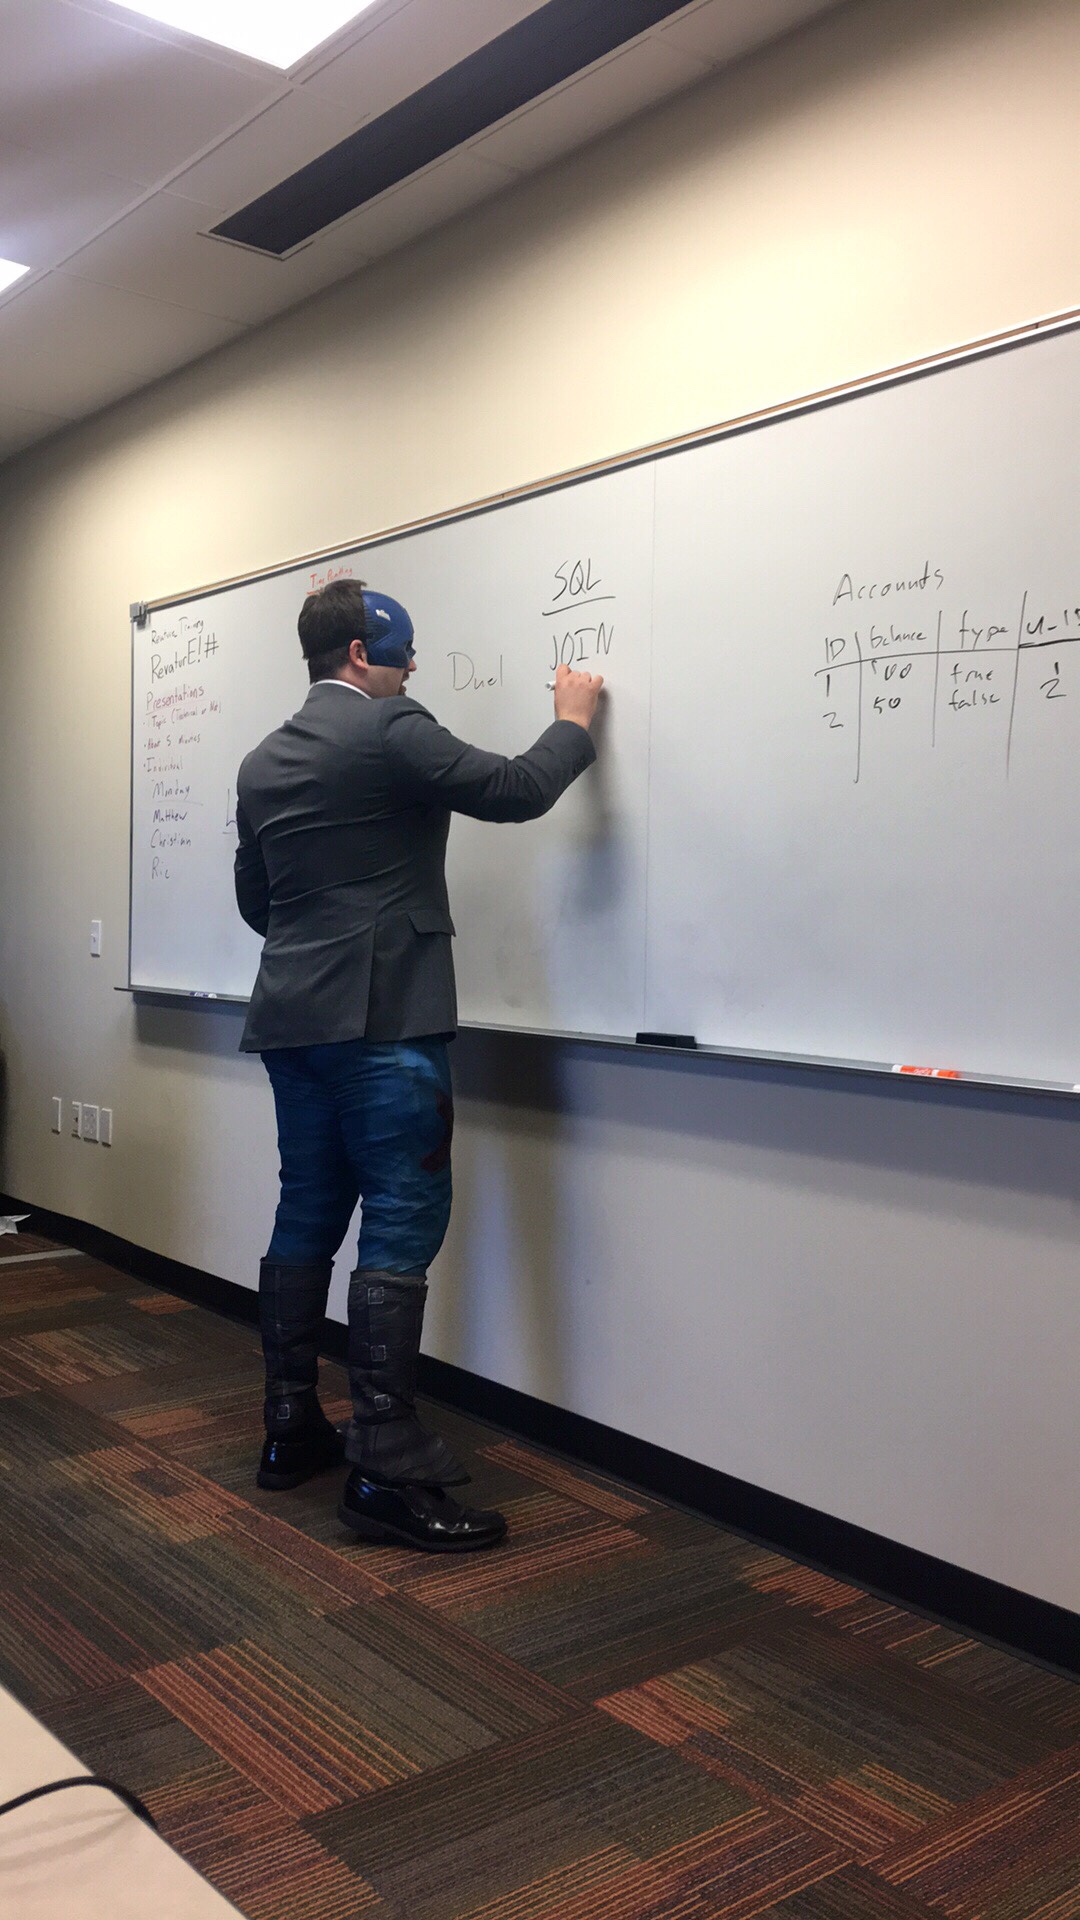 Revature Training
RevaturE!#
Presentations
· Topic (Technical or Not)
· About 5 minutes
· Individual
Monday
Matthew
Christian
Ric
Dual
SQL
JOIN
Accounts
ID balance type
1 100 true 1
2 50 false 2